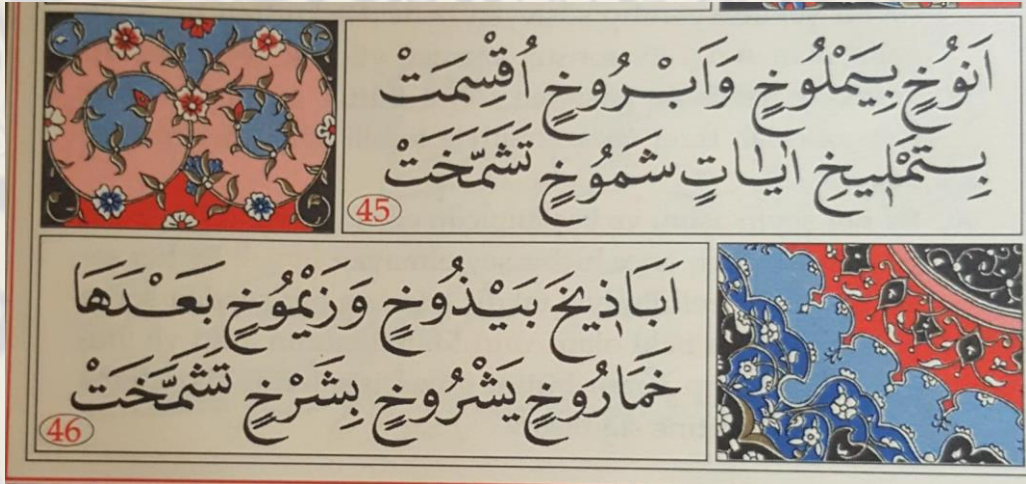 اَنُوخٍ بِيَمْلُوخٍ وَاَبْرُوخٍ اُقْسِمَتْ
بِسْتَمْلٖيخِ اٰيَاتٍ شَمُوخٍ تَشَمَّخَتْ
45
اَبَاذٖيخَ بَيْذُوخٍ وَزَيْمُوخٍ بَعْدَهَا
خَمَارُوخٍ يَشْرُوخٍ بِشَرْخٍ تَشَمَّخَتْ
46